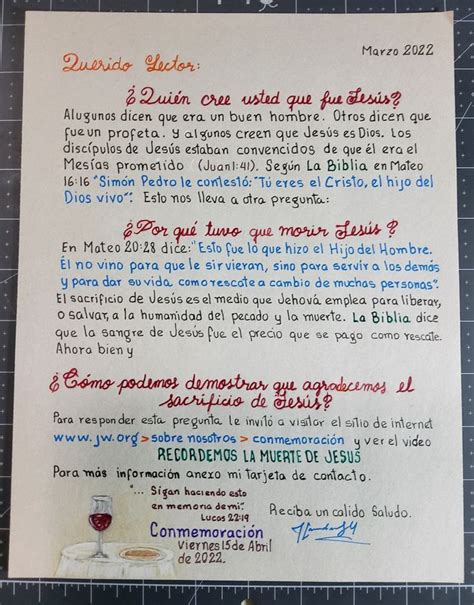 Marzo 2022
Querido Lector:
¿Quién cree usted que fue Jesús?
Alugunos dicen que era un buen hombre. Otros dicen que
fue un profeta. Y algunos creen que Jesús es Dios. Los
discípulos de Jesús estaban convencidos de que él era el
Mesías prometido (Juan 1:41). Según La Biblia en Mateo
16:16 "Simón Pedro le contestó: "Tú eres el Cristo, el hijo del
Dios vivo". Esto nos lleva a otra pregunta:
¿Por qué tuvo que morir Jesús?
En Mateo 20:28 dice: "Esto fue lo que hizo el Hijo del Hombre.
Él no vino para que le sirvieran, sino para servir a los demás
y para dar su vida como rescate a cambio de muchas personas".
El sacrificio de Jesús es el medio que Jehová emplea para liberar,
o salvar, a la humanidad del pecado y la muerte. La Biblia dice
que la sangre de Jesús fue el precio que se pago como rescate.
Ahora bien y
¿Cómo podemos demostrar que agradecemos el
sacrificio de Jesús?
Para responder esta pregunta le invitó a visitar el sitio de internet
www.jw.org > sobre nosotros > conmemoración y ver el video
RECORDEMOS LA MUERTE DE JESÚS
Para más información anexo mi tarjeta de contacto.
"... Sigan haciendo esto
en memoria de mi".
Lucas 22:19
Reciba un calido Saludo.
Conmemoración
Viernes 15 de Abril
de 2022.